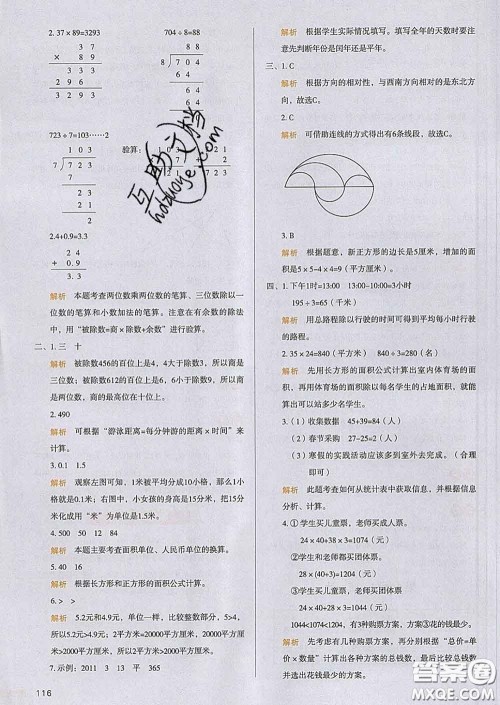 2. 37×89=3293
704÷8=88
3 7
8 8
× 8 9
8 7 0 4
3 3 3
6 4
2 9 6
6 4
3 2 9 3
6 4
0
723÷7=103……2
验算：
1 0 3
1 0 3
× 7
7 7 2 3
7
2 3
2 1
2
2.4+0.9=3.3
2. 4
+ 0. 9
3. 3
解析 本题考查两位数乘两位数的笔算、三位数除以一位数的笔算和小数加法的笔算。注意在有余数的除法中，用“被除数=商×除数+余数”进行验算。
二、1. 三 十
解析 被除数456的百位上是4，4大于除数3，所以商是三位数；被除数612的百位上是6，6小于除数9，所以商是两位数。
2. 490
解析 可根据“游泳距离=每分钟游的距离×时间”来计算。
3. 0.1 1.5
解析 观察左图可知，1米被平均分成10小格，那么1小格就是0.1米；右图中，小女孩的身高是15分米，把15分米化成用“米”为单位是1.5米。
4. 500 50 12 84
解析 本题主要考查面积单位、人民币单位的换算。
5. 40 16
解析 根据长方形和正方形的面积公式计算。
6. > >
解析 5.2元和4.9元，单位一样，比较整数部分，5>4，所以5.2元>4.9元；2平方米=20000平方厘米，20000平方厘米>2000平方厘米，所以2平方米>2000平方厘米。
7. 示例：2011 3 13 平 365
116
解析 根据学生实际情况填写。填写全年的天数时要注意先判断年份是闰年还是平年。
三、1. C
解析 根据方向的相对性，与西南方向相对的是东北方向，故选C。
2. C
解析 可借助连线的方式得出有6条线段，故选C。
3. B
解析 根据题意，新正方形的边长是5厘米，增加的面积是5×5-4×4=9（平方厘米）。
四、1. 下午1时=13:00 13:00-10:00=3小时
195÷3=65（千米）
解析 用总路程除以行驶的时间可得到平均每小时行驶的路程。
2. 35×24=840（平方米） 840÷3=280（名）
解析 先用长方形的面积公式计算出室内体育场的面积，再用体育场面积除以每名学生的占地面积，就能算出可以站多少名学生。
3. （1）收集数据 45+39=84（人）
（2）春节采购 27-25=2（人）
（3）寒假的实践活动应该多到室外去完成。（合理即可）
解析 此题考查如何从统计表中获取信息，并根据信息分析、计算。
4. ①学生买儿童票，老师买成人票。
24×40+28×3=1044（元）
②学生和老师都买团体票。
28×40=1120（元）
③学生买儿童票，老师买团体票。
24×40+28×3=1044（元）
解析 先考虑有几种购票方案，再根据“总价=单价×数量”计算出各种方案的总钱数，最后比较总钱数并选出花钱最少的方案。
互助文档
hdzuoye.com
答案圈
MXQE.COM